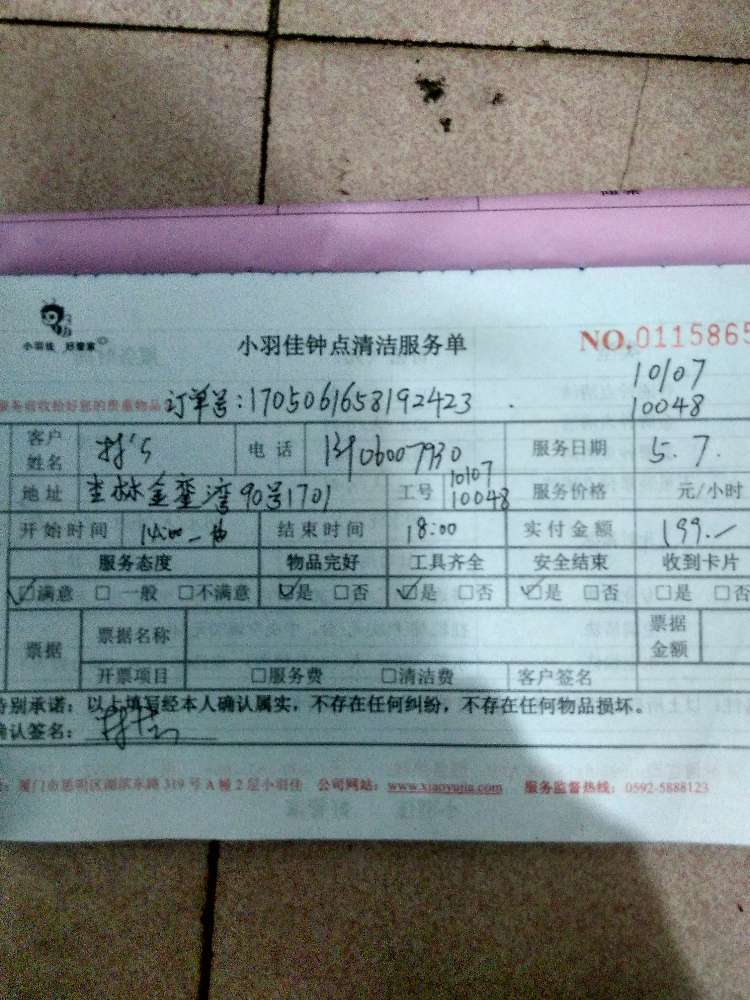 小羽佳 好管家
小羽佳钟点清洁服务单
NO.0115865
10107
10048
服务前收拾好您的贵重物品
订单号:1705061658192423
客户姓名
电话
服务日期 5.7.
地址 杏林金銮湾90号1701
工号 10107 10048
服务价格 元/小时
开始时间 14:00
结束时间 18:00
实付金额 199.-
服务态度 物品完好 工具齐全 安全结束 收到卡片
☑满意 □一般 □不满意 ☑是 □否 ☑是 □否 ☑是 □否 □是 □否
票据 票据名称 票据金额
开票项目 □服务费 □清洁费 客户签名
特别承诺:以上填写经本人确认属实,不存在任何纠纷,不存在任何物品损坏。
确认签名:
厦门市思明区湖滨东路319号A幢2层小羽佳 公司网站:www.xiaoyujia.com 服务监督热线:0592-5888123